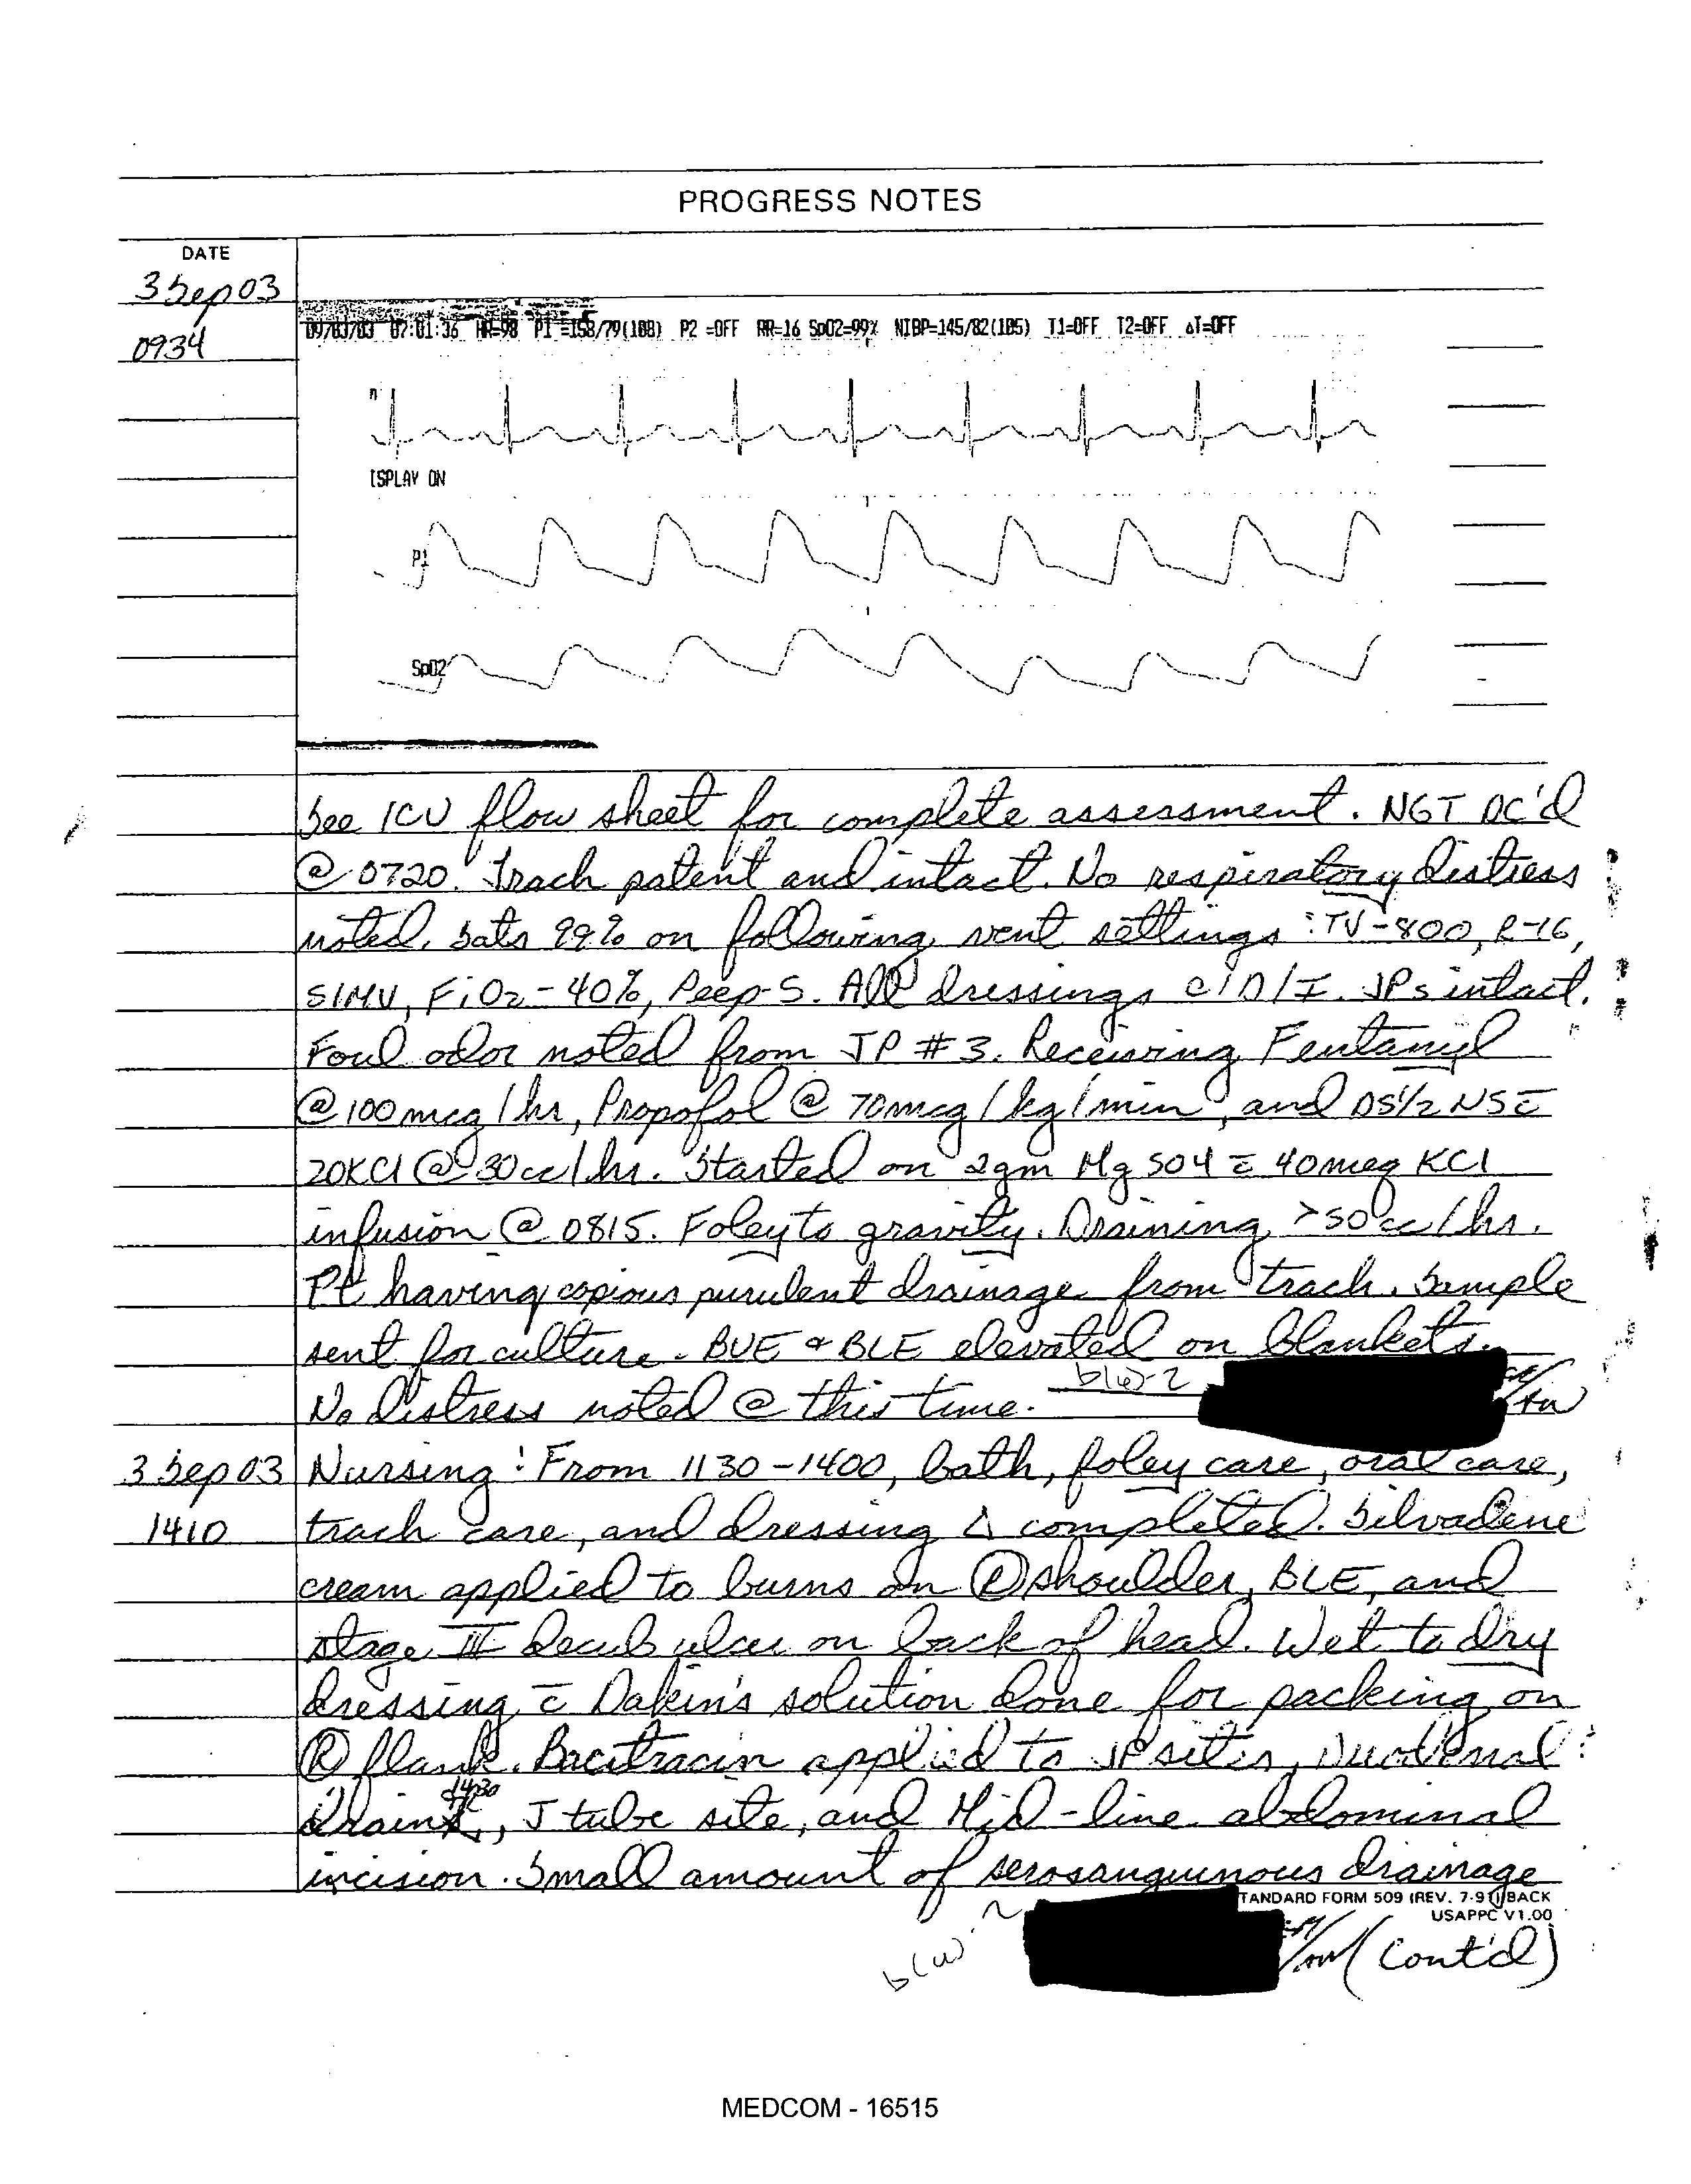 PROGRESS NOTES
DATE
3 Sep 03
0934
09/03/03 07:01:36 HR=98 P1 =158/79(108) P2 =OFF RR=16 SpO2=99% NIBP=145/82(105) T1=OFF T2=OFF ΔT=OFF
ISPLAY ON
P1
SpO2
See ICU flow sheet for complete assessment. NGT DC'd
@ 0720. Trach patent and intact. No respiratory distress
noted. Sats 99% on following vent settings: TV-800, R-16,
SIMV, FiO2-40%, Peep-5. All dressings C/D/I. JPs intact.
Foul odor noted from JP #3. Receiving Fentanyl
@ 100mcg/hr, Propofol @ 70mcg/kg/min, and D5½NS c̄
20KCl @ 30cc/hr. Started on 2gm MgSO4 c̄ 40meq KCl
infusion @ 0815. Foley to gravity. Draining >50cc/hr.
Pt having copious purulent drainage from trach. Sample
sent for culture. BUE + BLE elevated on blankets.
No distress noted @ this time. b(6)-2
3 Sep 03 Nursing: From 1130-1400, bath, foley care, oral care,
1410 trach care, and dressing Δ completed. Silvadene
cream applied to burns on shoulder, BLE, and
stage decub ulcer on back of head. Wet to dry
dressing c̄ Dakin's solution done for packing on
Ⓡ flank. Bacitracin applied to JP sites, Duodenal
1430
drain, J tube site, and Mid-line abdominal
incision. Small amount of serosanguinous drainage
TANDARD FORM 509 (REV. 7-91) BACK
USAPPC V1.00
b(6)-2 (Cont'd)
MEDCOM - 16515